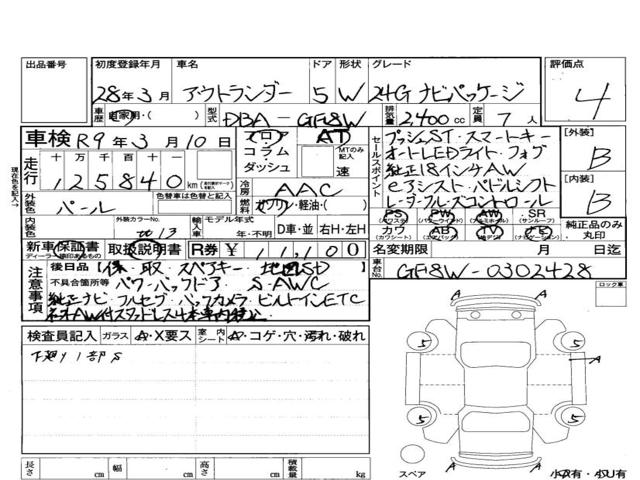 出品番号 初度登録年月 車名 ドア 形状 グレード 評価点
28年3月 アウトランダー 5 W 24G ナビパッケージ 4
車歴 自家用・( ) 型式 DBA-GF8W 排気量 2,400cc 定員 7人
車検 R9年3月10日 フロア コラム ダッシュ AT MTのみ記入 速
走行 十 万 千 百 十 一
125840km
冷房 AAC
外装色 パール 色替車は色替と記入 燃料 ガソリン・軽油・( )
内装色 外装カラーNo. W13 輸入車 モデル年式 年・不明 D車・並 右H・左H
セールスポイント
プッシュST・スマートキー
オートLEDライト・フォグ
純正18インチAW
eアシスト・パドルシフト
レーダークルーズコントロール
PS PW AW SR
カワ AB TV
純正品のみ丸印
【外装】 B
【内装】 B
新車保証書 取扱説明書 R券 ¥11,100
名変期限 月 日迄
車台No. GF8W-0302428
ロック車
注意事項
後日品 保・取・スペアキー・地図SD
不具合箇所等 パワーバックドア S-AWC
純正ナビ フルセグ バックカメラ ビルトインETC
検査員記入 ガラス A・X要ス 室内シート A・コゲ・穴・汚れ・破れ
下廻り1部S
5 5 5 5
A
A
長さ cm 幅 cm 高さ cm 積載量 kg
スペア